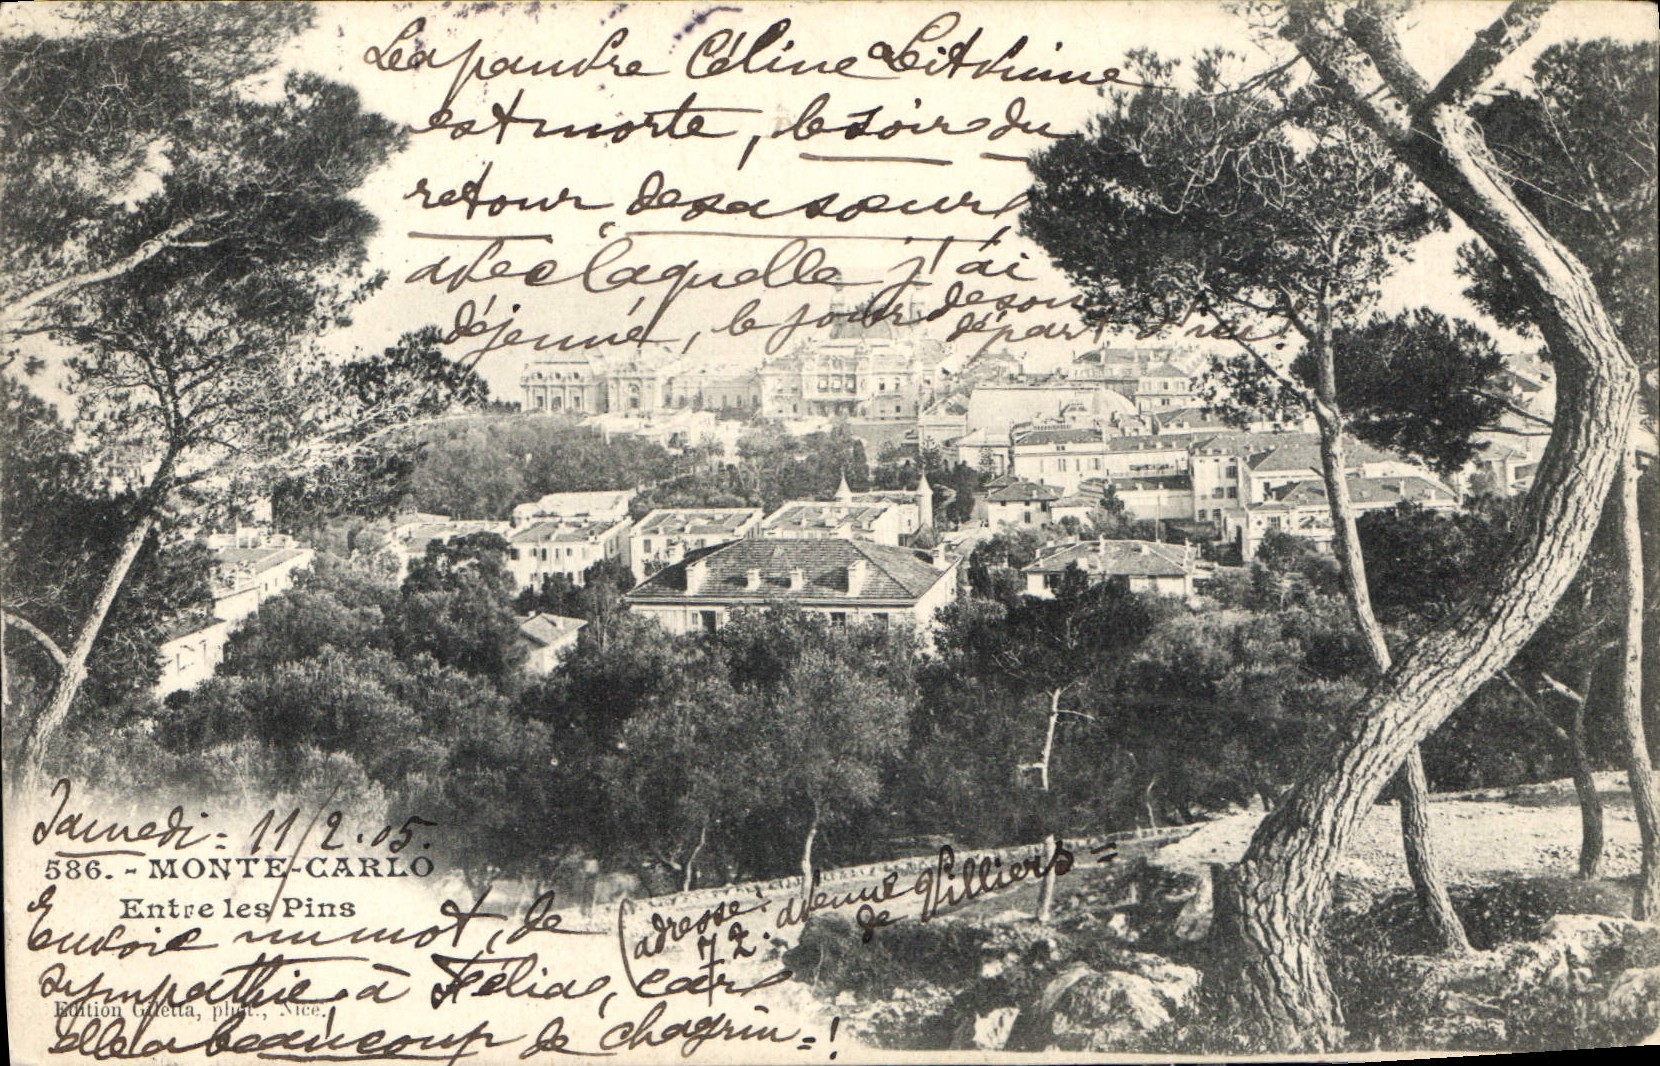 La pauvre Céline Litvinne
est morte, le soir du
retour de sa soeur,
avec laquelle j'ai
déjeuné, le jour de son
départ d'ici!
Samedi = 11/2.05.
586. - MONTE-CARLO
Entre les Pins
Envoie un mot, de
sympathie à Félia, car
elle a beaucoup de chagrin = !
(adresse: avenue de Villiers =
72.
Edition Giletta, phot., Nice.